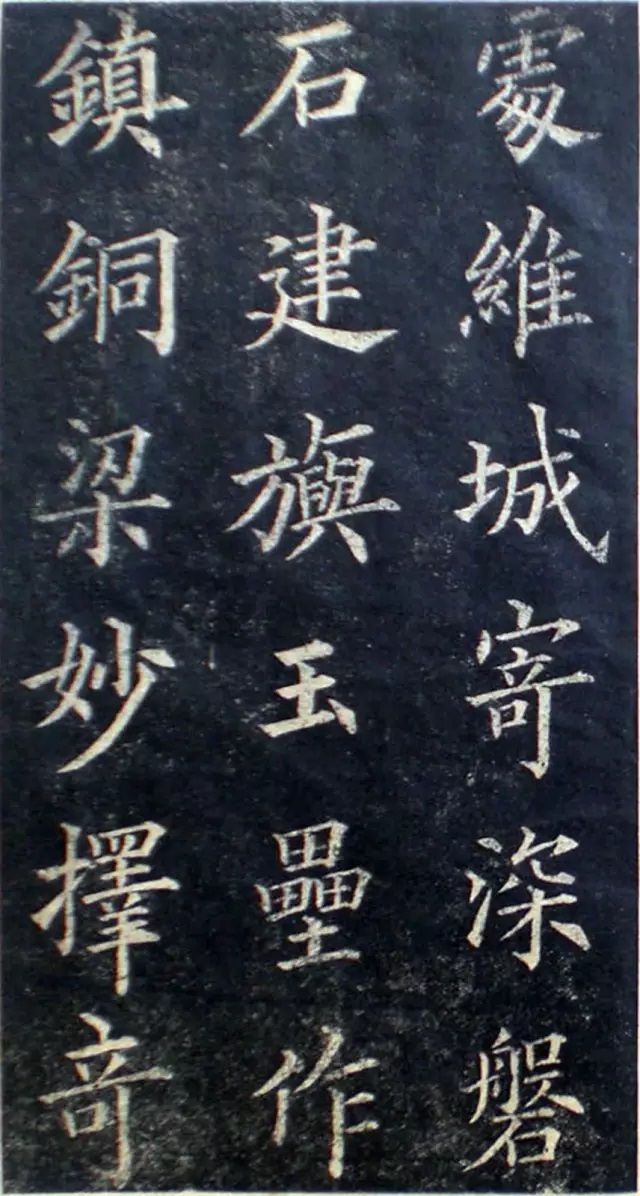 處維城寄深磐
石建旟玉壘作
鎮銅梁妙擇奇